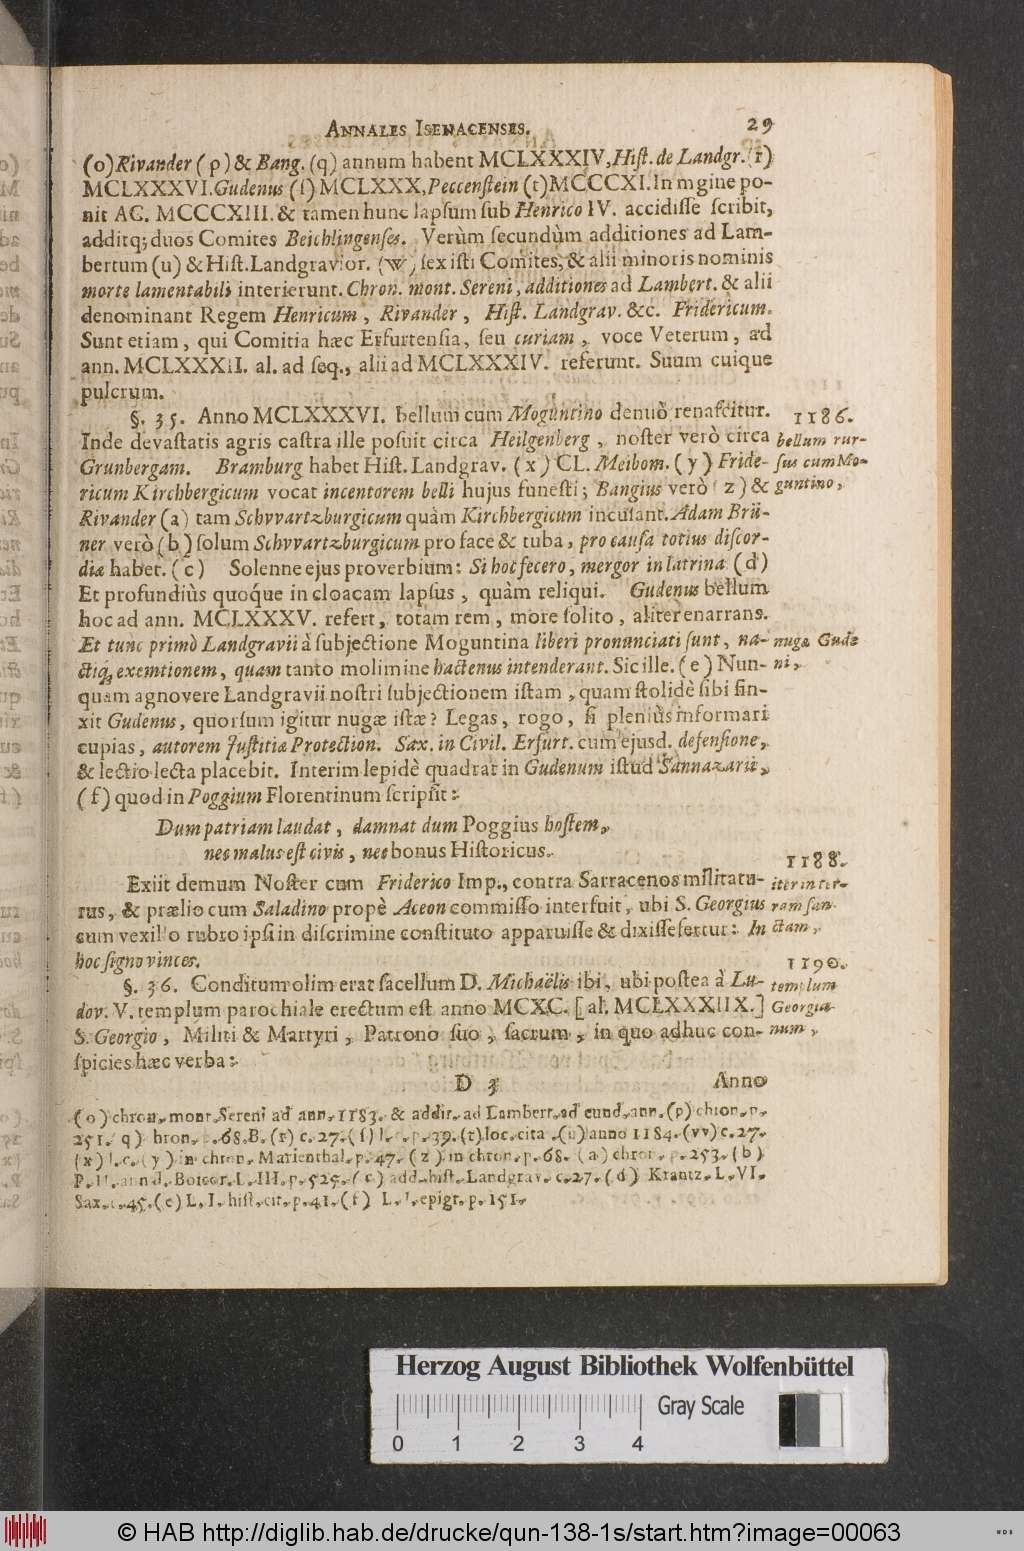 ANNALES ISENACENSES. 29
(o) Rivander (p) & Bang. (q) annum habent MCLXXXIV, Hiſt. de Landgr. (r)
MCLXXXVI. Gudenus (ſ) MCLXXX, Peccenſtein (t) MCCCXI. In mgine po-
nit AC. MCCCXIII. & tamen hunc lapſum ſub Henrico IV. accidiſſe ſcribit,
additq; duos Comites Beichlingenſes. Verùm ſecundùm additiones ad Lam-
bertum (u) & Hiſt. Landgravior. (w) ſex iſti Comites, & alii minoris nominis
morte lamentabili interierunt. Chron. mont. Sereni, additiones ad Lambert. & alii
denominant Regem Henricum, Rivander, Hiſt. Landgrav. &c. Fridericum.
Sunt etiam, qui Comitia hæc Erfurtenſia, ſeu curiam, voce Veterum, ad
ann. MCLXXXII. al. ad ſeq., alii ad MCLXXXIV. referunt. Suum cuique
pulcrum.
§. 35. Anno MCLXXXVI. bellum cum Moguntino denuò renaſcitur. 1186.
Inde devaſtatis agris caſtra ille poſuit circa Heilgenberg, noſter verò circa bellum rur-
Grunbergam. Bramburg habet Hiſt. Landgrav. (x) CL. Meibom. (y) Fride- ſus cum Mo-
ricum Kirchbergicum vocat incentorem belli hujus funeſti; Bangius verò (z) & guntino,
Rivander (a) tam Schvvartzburgicum quàm Kirchbergicum inculant. Adam Brü-
ner verò (b) ſolum Schvvartzburgicum pro face & tuba, pro cauſa totius diſcor-
diæ habet. (c) Solenne ejus proverbium: Si hoc fecero, mergor in latrina (d)
Et profundiùs quoque in cloacam lapſus, quàm reliqui. Gudenus bellum
hoc ad ann. MCLXXXV. refert, totam rem, more ſolito, aliter enarrans.
Et tunc primò Landgravii à ſubjectione Moguntina liberi pronunciati ſunt, na- nugæ Gude
ctiq; exemtionem, quam tanto molimine hactenus intenderant. Sic ille. (e) Nun- ni,
quam agnovere Landgravii noſtri ſubjectionem iſtam, quam ſtolidè ſibi fin-
xit Gudenus, quorſum igitur nugæ iſtæ? Legas, rogo, ſi pleniùs informari
cupias, autorem Juſtitiæ Protection. Sax. in Civil. Erfurt. cum ejusd. defenſione,
& lectio lecta placebit. Interim lepidè quadrat in Gudenum iſtud Sannazarii,
(f) quod in Poggium Florentinum ſcripſit:
Dum patriam laudat, damnat dum Poggius hoſtem,
nec malus eſt civis, nec bonus Hiſtoricus.
1188.
Exiit demum Noſter cum Friderico Imp., contra Sarracenos militatu- iter in ter-
rus, & prælio cum Saladino propè Aceon commiſſo interfuit, ubi S. Georgius ram ſan
cum vexillo rubro ipſi in diſcrimine conſtituto apparuiſſe & dixiſſe fertur: In ctam,
hoc ſigno vinces. 1190.
§. 36. Conditum olim erat ſacellum D. Michaëlis ibi, ubi poſtea à Lu- templum
dov. V. templum parochiale erectum eſt anno MCXC. [al. MCLXXXIIX.] Georgia-
S. Georgio, Militi & Martyri, Patrono ſuo, ſacrum, in quo adhuc con- num,
ſpicies hæc verba:
D 3 Anno
(o) chron. mont. Sereni ad ann. 1183. & addit. ad Lambert. ad eund. ann. (p) chron. p.
251. q) hron. p. 68. B. (r) c. 27. (ſ) l. c. p. 39. (t) loc. cita. (u) anno 1184. (vv) c. 27.
(x) l. c. (y) in chron. Marienthal. p. 47. (z) in chron. p. 68. (a) chron. p. 253. (b)
Boicor. L. III. p. 525. (c) add. hiſt. Landgrav. c. 27. (d) Krantz. L. VI.
Sax. c. 45. (e) L. I. hiſt. cit. p. 41. (f) L. I. epigr. p. 151.
Herzog August Bibliothek Wolfenbüttel
Gray Scale
0 1 2 3 4
© HAB http://diglib.hab.de/drucke/qun-138-1s/start.htm?image=00063